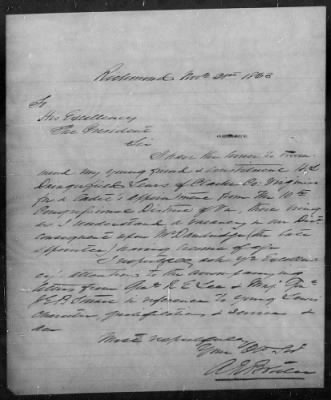 Richmond Nov. 21st 1863
To
His Excellency
The President
Sir
I have the honor to recom
mend my young friend & constituent H. L.
Dangerfield Lewis of Clarke Co Virginia
for a Cadet's appointment from the 10th
Congressional District of Va, there being
as I understand a vacancy in our Dist
consequent upon Mr Dandridge (the late
appointee) having resigned
I respectfully ask yr Excellen
cy's attention to the accompanying
letters from Genl R. E. Lee & Maj. Genl
J. E. B. Stuart in reference to young Lewis'
character, qualifications & services &
Most respectfully
Your Obt Svt
A. R. Boteler